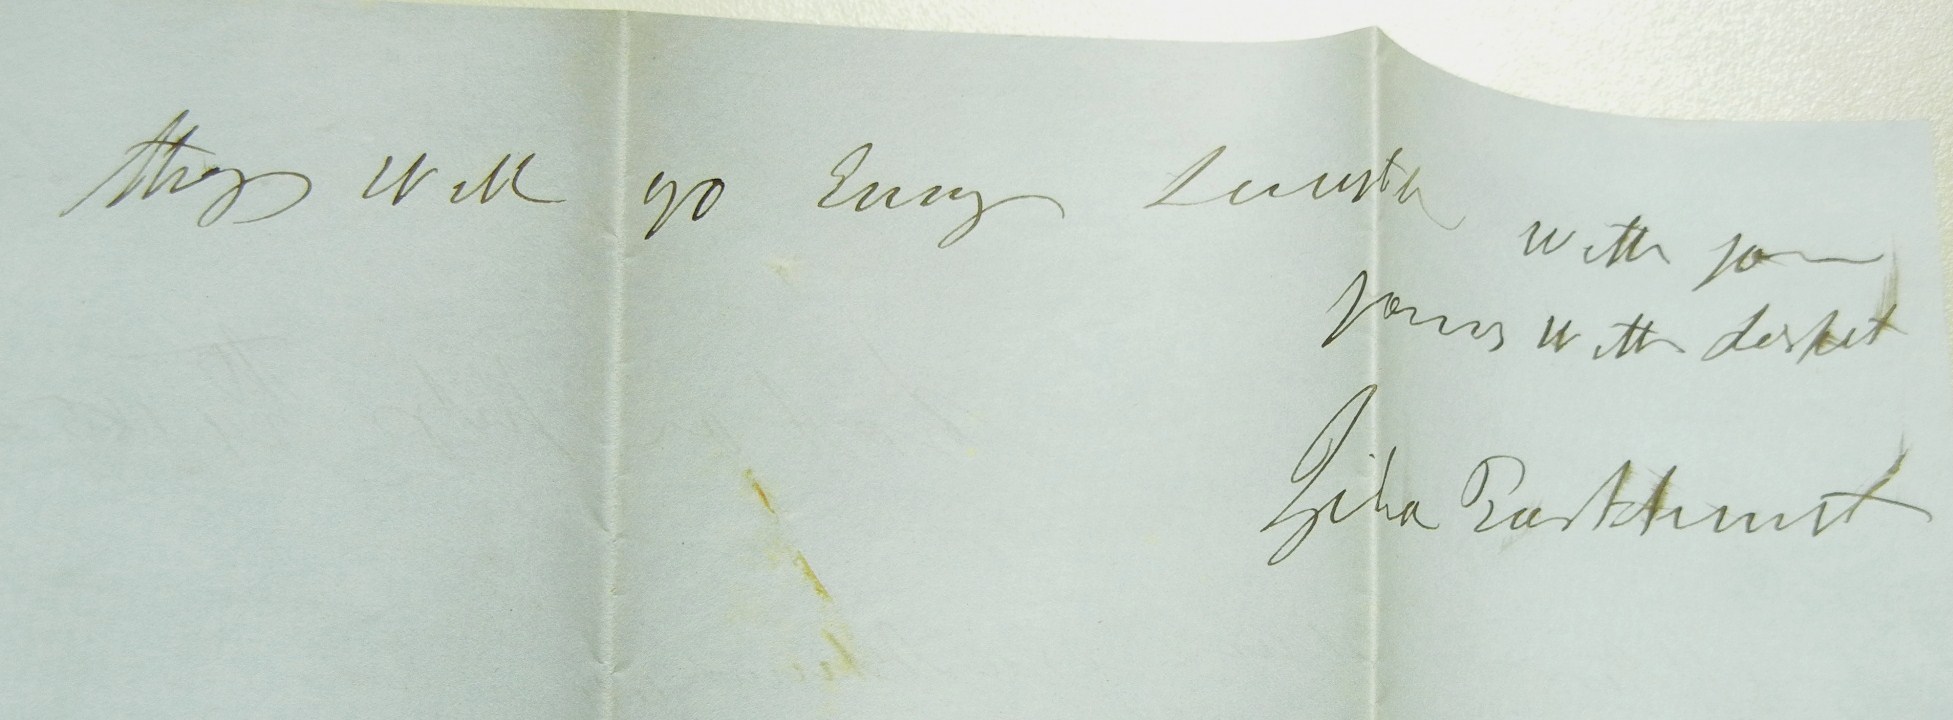 things will go Easy Smooth
with you
yours with Respect
Ziba Parkhurst